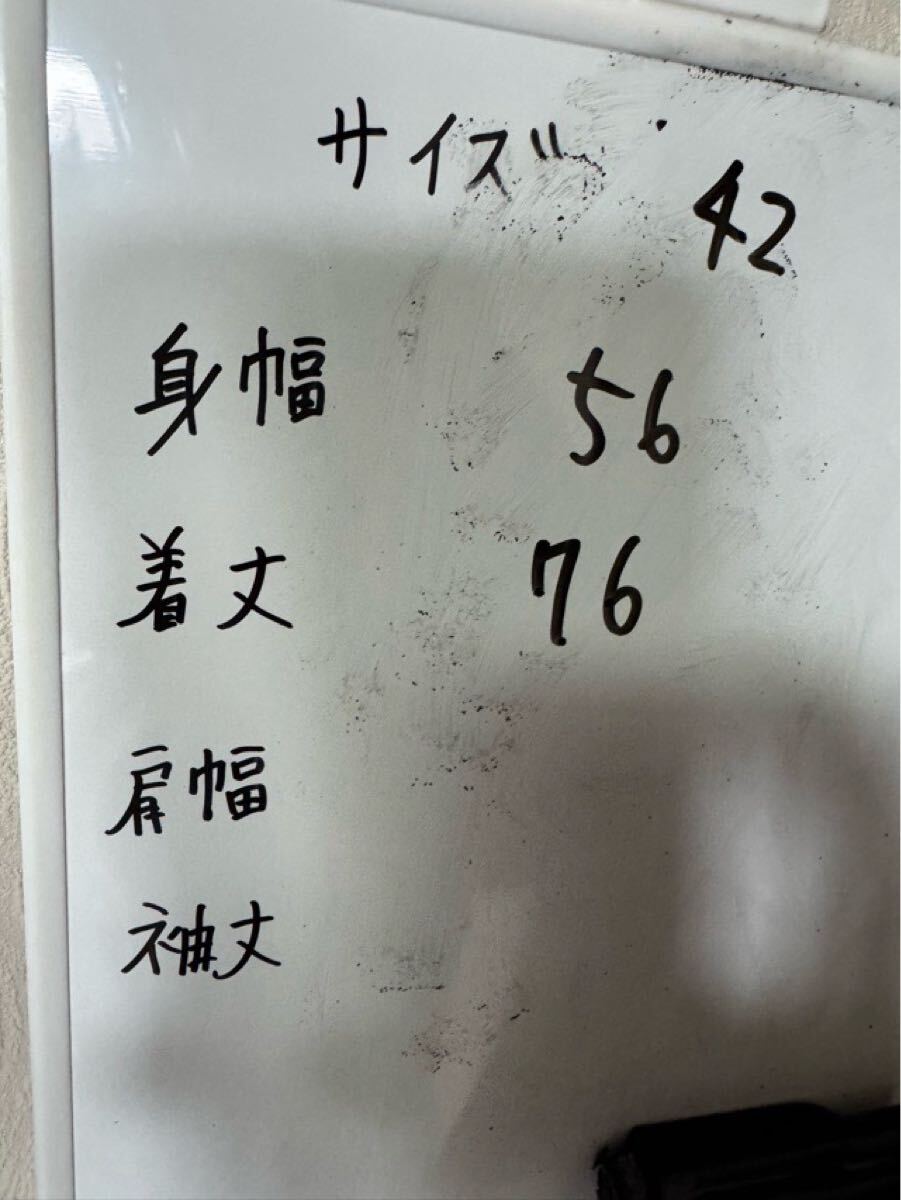 サイズ 42
身幅 56
着丈 76
肩幅
袖丈